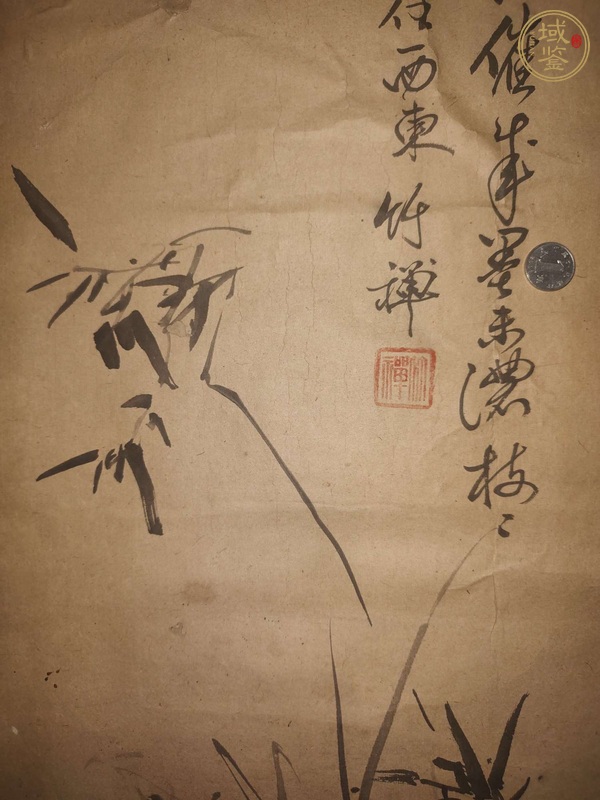 催成墨未濃枝〻
任西東 竹禪
竹禪
域鉴